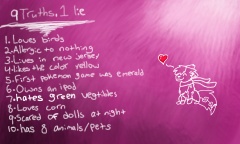 9 Truths, 1 lie
1. Loves birds
2. Allergic to nothing
3. Lives in new Jersey
4. Likes the color yellow
5. First pokemon game was emerald
6. Owns an ipod
7. hates green vegtables
8. Loves corn
9. Scared of dolls at night
10. has 8 animals/pets